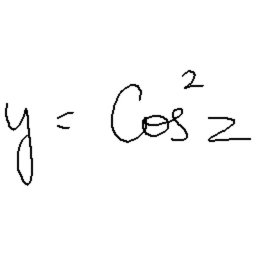 y = Cos²z